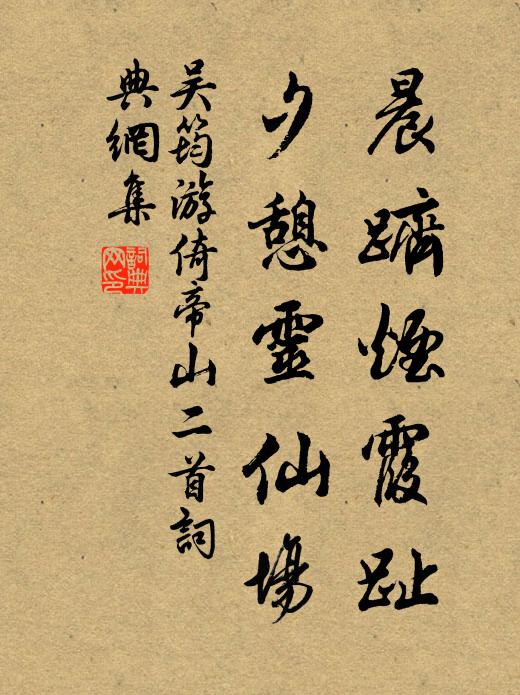 晨躋煙霞趾
夕憩靈仙場
吴筠游倚帝山二首詞
典網集
詞典網印